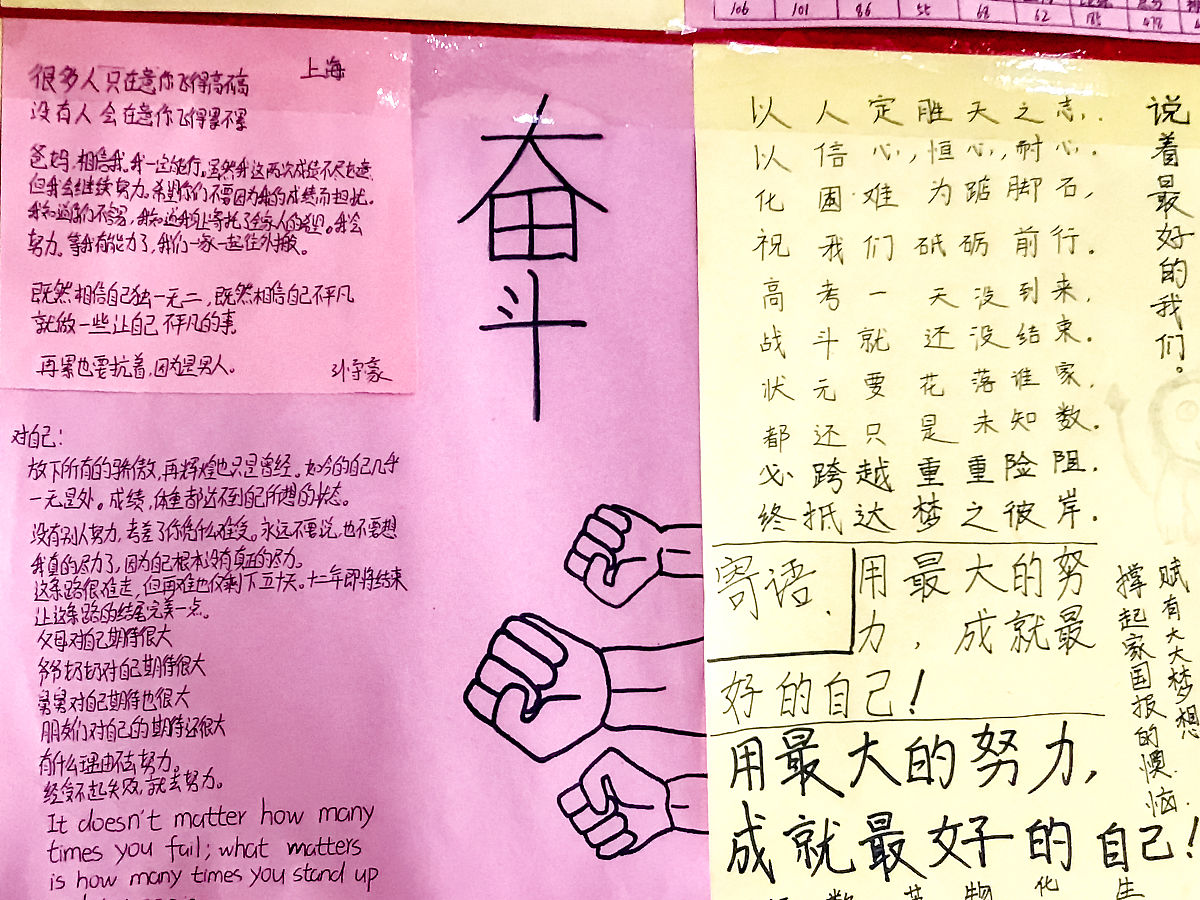 106 101 86 55 68 62 185 478
上海
很多人只在意你飞得高不高
没有人会在意你飞得累不累
爸妈,相信我,我一定能行。虽然我这两次成绩不尽如意
但我会继续努力。希望你们不要因为我的成绩而担忧。
努力。等我有能力了,我们一家一起往外搬。
既然相信自己独一无二,既然相信自己不平凡
就做一些让自己不平凡的事
再累也要抗着,因为是男人。
对自己:
放下所有的骄傲,再辉煌也只是曾经。如今的自己几乎
一无是处。成绩,体重都达不到自己所想的状态。
没有别人努力,考差了你凭什么难受。永远不要说,也不要想
我真的尽力了,因为自己根本没有真正的尽力。
这条路很难走,但再难也仅剩下五十天。十二年即将结束
让这条路的结尾完美一点。
父母对自己期待很大
爷爷奶奶对自己期待很大
舅舅对自己期待也很大
朋友们对自己的期待还很大
有什么理由不去努力。
经受不起失败,就去努力。
It doesn't matter how many
times you fail; what matters
is how many times you stand up
奋斗
说着最好的我们。
以人定胜天之志,
以信心,恒心,耐心.
化困难为踮脚石,
祝我们砥砺前行.
高考一天没到来,
战斗就还没结束.
状元要花落谁家,
都还只是未知数.
必跨越重重险阻.
终抵达梦之彼岸.
寄语.
用最大的努
力,成就最
好的自己!
赋有大大梦想
撑起家国报的懊恼
用最大的努力,
成就最好的自己!
数 英 物 化 生